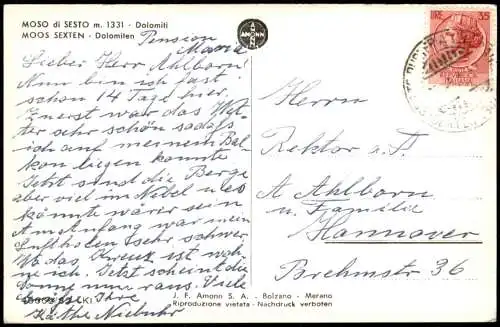 MOSO di SESTO m. 1331 - Dolomiti
MOOS SEXTEN - Dolomiten
Pension
Maria
Lieber Herr Ahlborn!
Nun bin ich fast
schon 14 Tage hier.
Zuerst war das Wet-
ter sehr schön sodaß
ich auf meinem Bal
kon liegen konnte
Jetzt sind die Berge
aber viel im Nebel u es
könnte wärmer sein
Am Anfang war mein
Luftholen sehr schwer.
Wo das Kreuz ist woh
ne ich. Jetzt scheint die
Sonne nur raus. Viele
Ihre
Käthe Niebuhr
AMONN
LIRE 35
Herrn
Rektor a. D.
A Ahlborn
u. Familie
Hannover
Brehmstr 36
J. F. Amonn S. A. - Bolzano - Merano
Riproduzione vietata - Nachdruck verboten